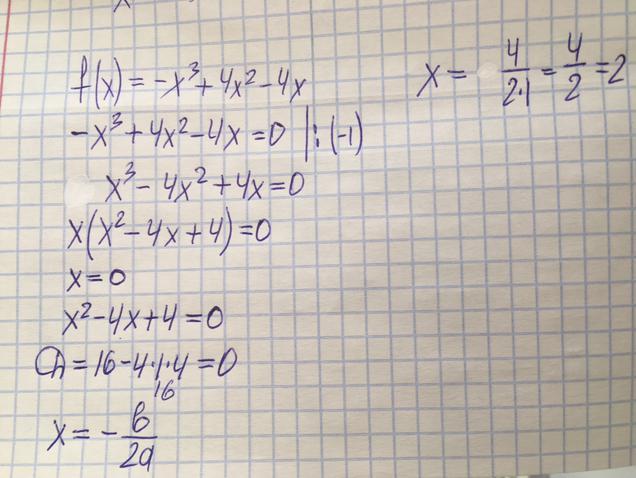 f(x) = -x³ + 4x² - 4x
-x³ + 4x² - 4x = 0 |: (-1)
x³ - 4x² + 4x = 0
x(x² - 4x + 4) = 0
x = 0
x² - 4x + 4 = 0
D = 16 - 4·1·4 = 0
16
x = - b/2a
x = 4/2·1 = 4/2 = 2